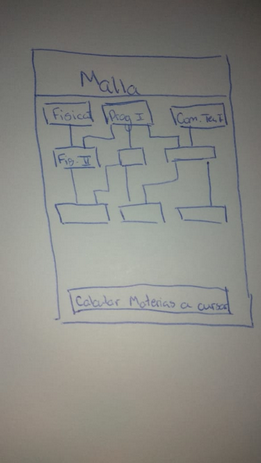 Malla
Fisica Prog I Com. Tec. I
Fis. II
Calcular Materias a cursar